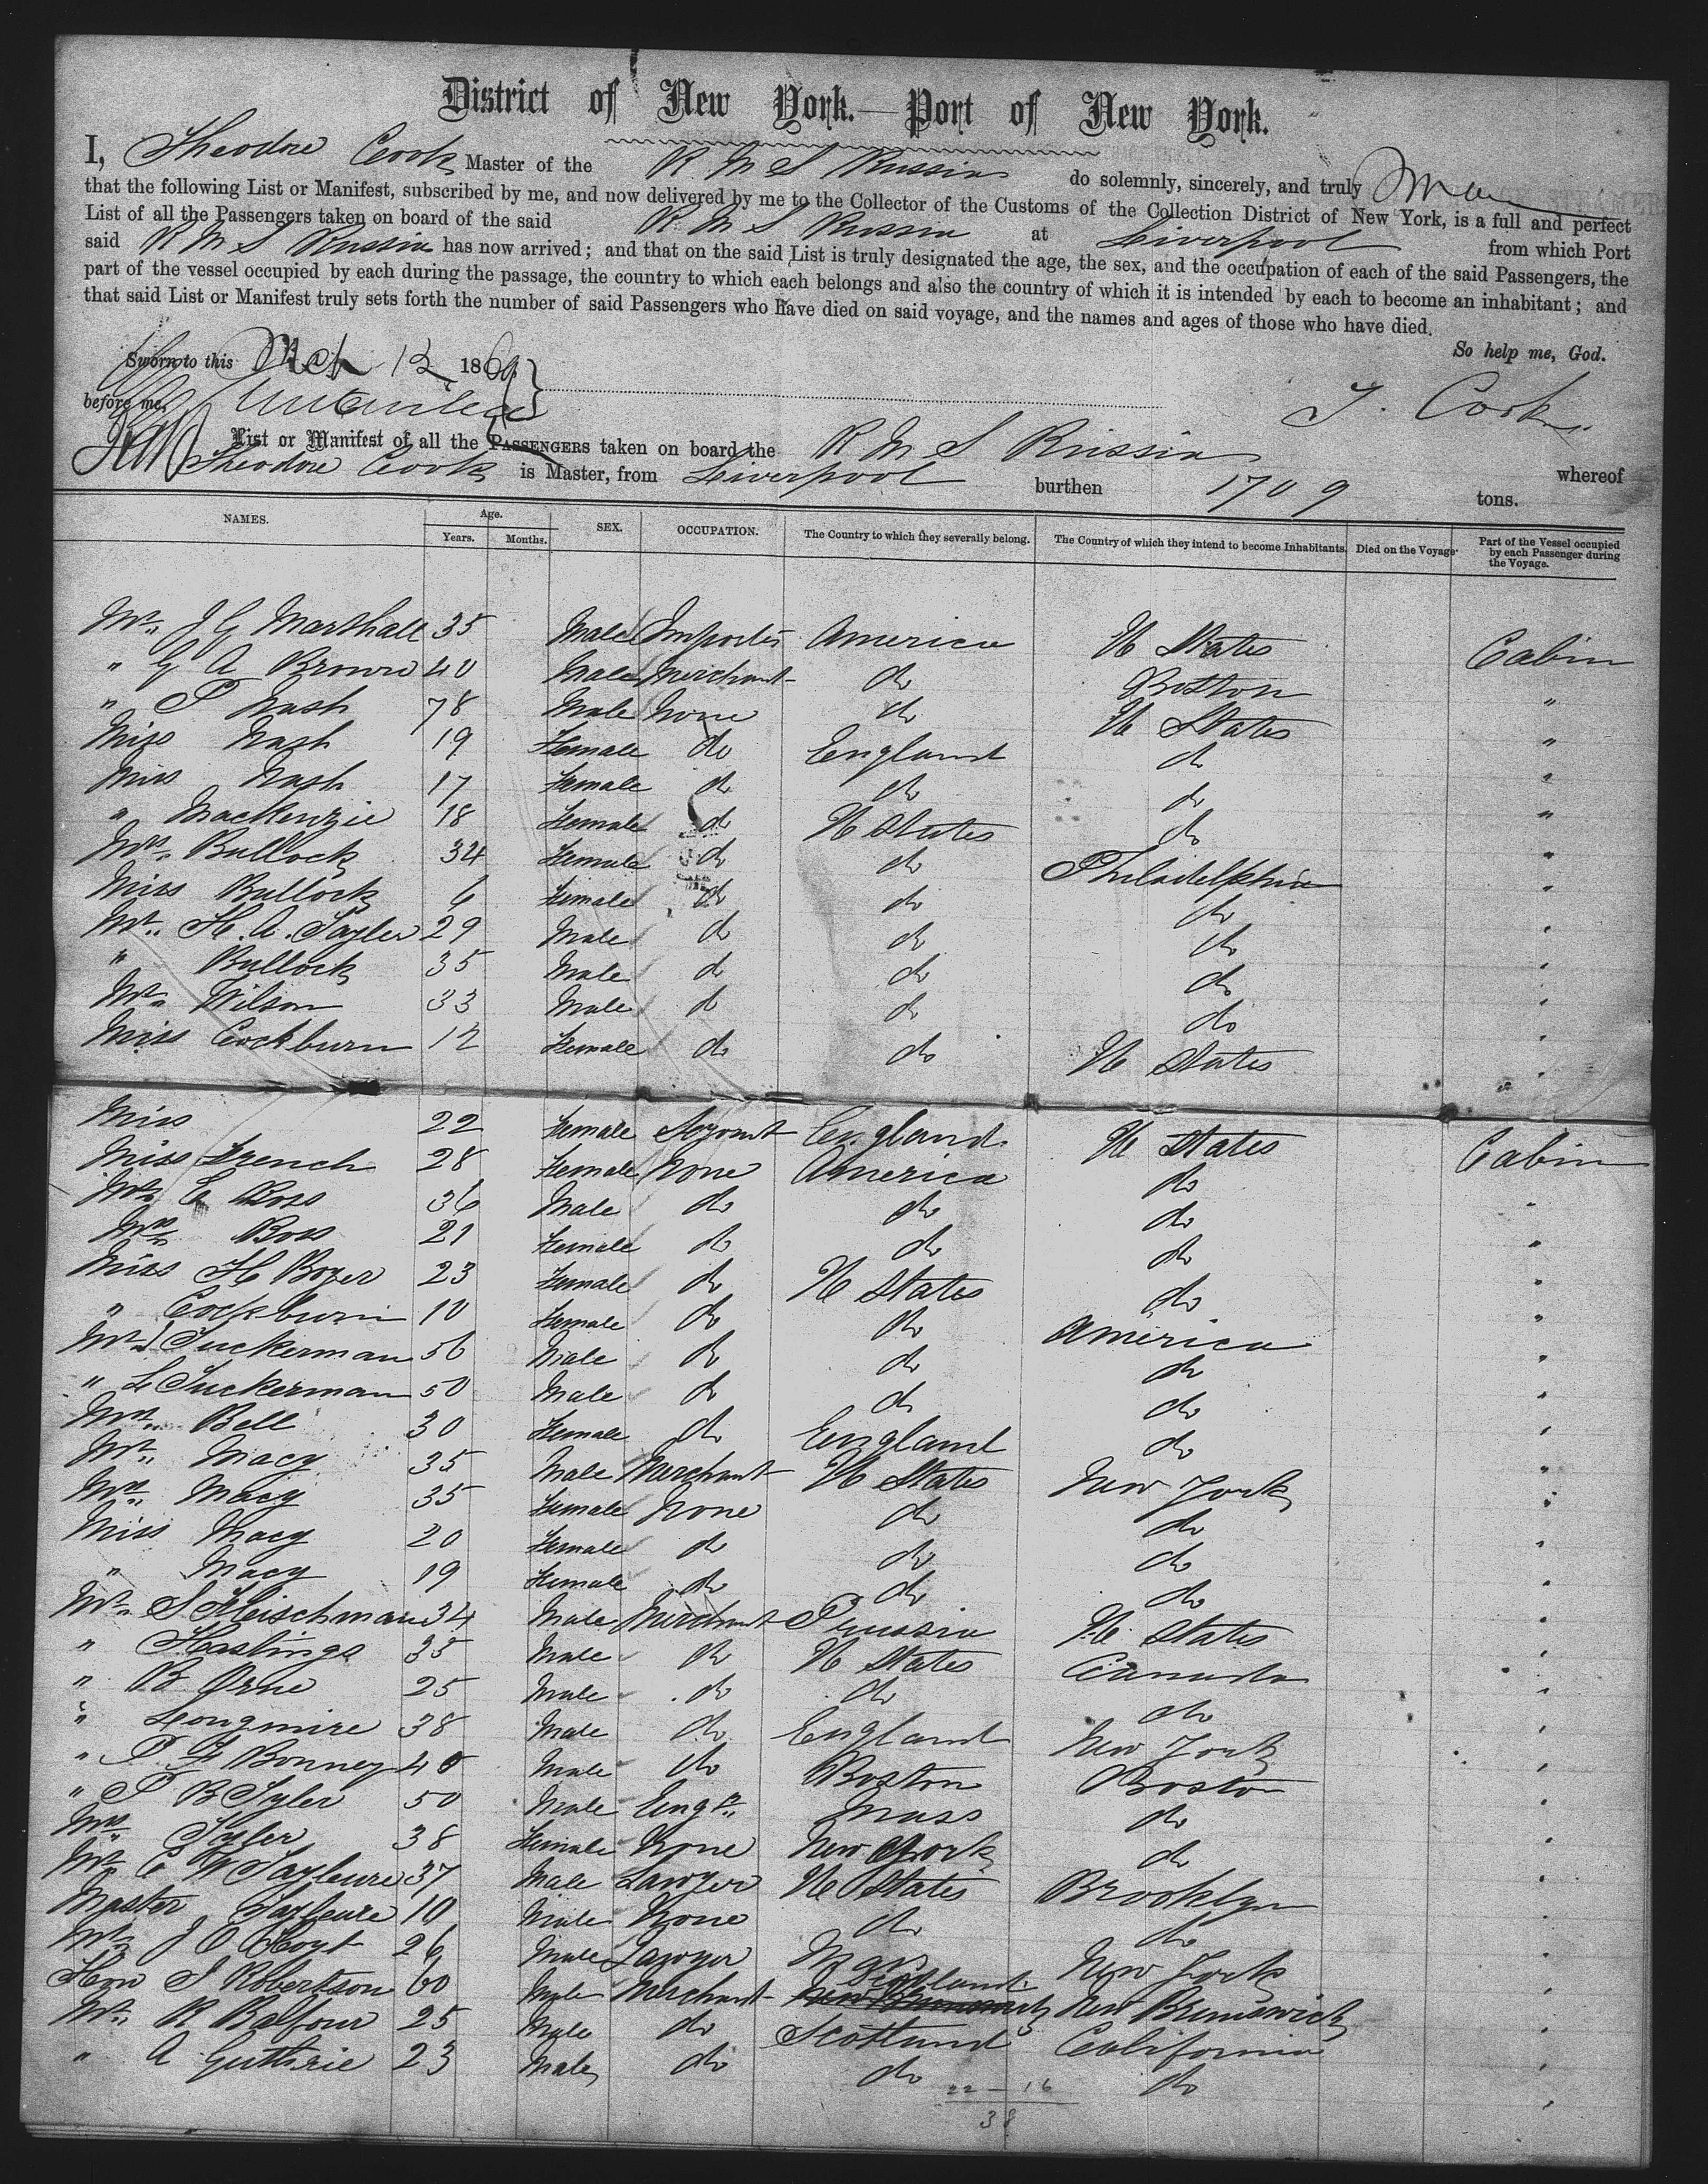 District of New York.—Port of New York.
I, Theodore Cook Master of the R M S Russia do solemnly, sincerely, and truly Swear
that the following List or Manifest, subscribed by me, and now delivered by me to the Collector of the Customs of the Collection District of New York, is a full and perfect
List of all the Passengers taken on board of the said R M S Russia at Liverpool from which Port
said R M S Russia has now arrived; and that on the said List is truly designated the age, the sex, and the occupation of each of the said Passengers, the
part of the vessel occupied by each during the passage, the country to which each belongs and also the country of which it is intended by each to become an inhabitant; and
that said List or Manifest truly sets forth the number of said Passengers who have died on said voyage, and the names and ages of those who have died.
So help me, God.
Sworn to this Mch 12 1869
before me,
T. Cook
List or Manifest of all the PASSENGERS taken on board the R M S Russia whereof
Theodore Cook is Master, from Liverpool burthen 1709 tons.
NAMES. Age. Years. Months. SEX. OCCUPATION. The Country to which they severally belong. The Country of which they intend to become Inhabitants. Died on the Voyage. Part of the Vessel occupied by each Passenger during the Voyage.
Mr. J G Marshall 35 Male Importer America U States Cabin
" G A Brown 40 Male Merchant do Boston "
" P Nash 78 Male None do U States "
Miss Nash 19 Female do England do "
Miss Nash 17 Female do do do "
" Mackenzie 18 Female do U States do "
Mrs. Bullock 34 Female do do Philadelphia "
Miss Bullock 6 Female do do do "
Mr. H. A. Tayler 29 Male do do do "
" Bullock 35 Male do do do "
Mr. Wilson 33 Male do do do "
Miss Cockburn 12 Female do do U States "
Miss 22 Female Servant England U States Cabin
Miss French 28 Female None America do "
Mr. Ross 36 Male do do do "
Mrs. Ross 21 Female do do do "
Miss H Boyer 23 Female do U States do "
" Cockburn 10 Female do do America "
Mr. J Tuckerman 56 Male do do do "
" L Tuckerman 50 Male do do do "
Mrs. Bell 30 Female do England do "
Mr. Macy 35 Male Merchant U States New York "
Mrs. Macy 35 Female None do do "
Miss Macy 20 Female do do do "
" Macy 19 Female do do do "
Mr. S Fleischman 34 Male Merchant Prussia U. States "
" Hastings 35 Male do U States Canada "
" B Orne 25 Male do do do "
" Longmire 38 Male do England New York "
" P F Bonney 40 Male do Boston Boston "
" P B Tyler 50 Male Engr. Mass do "
Mrs. Tyler 38 Female None New York do "
Mr. C W Tayleure 37 Male Lawyer U States Brooklyn "
Master Tayleure 10 Male None do do "
Mr. J O Hoyt 26 Male Lawyer New York "
Hon J Robertson 60 Male Merchant Scotland New Brunswick "
Mr. R Balfour 25 Male do Scotland California "
" A Guthrie 23 Male do do do "
22 – 16
38